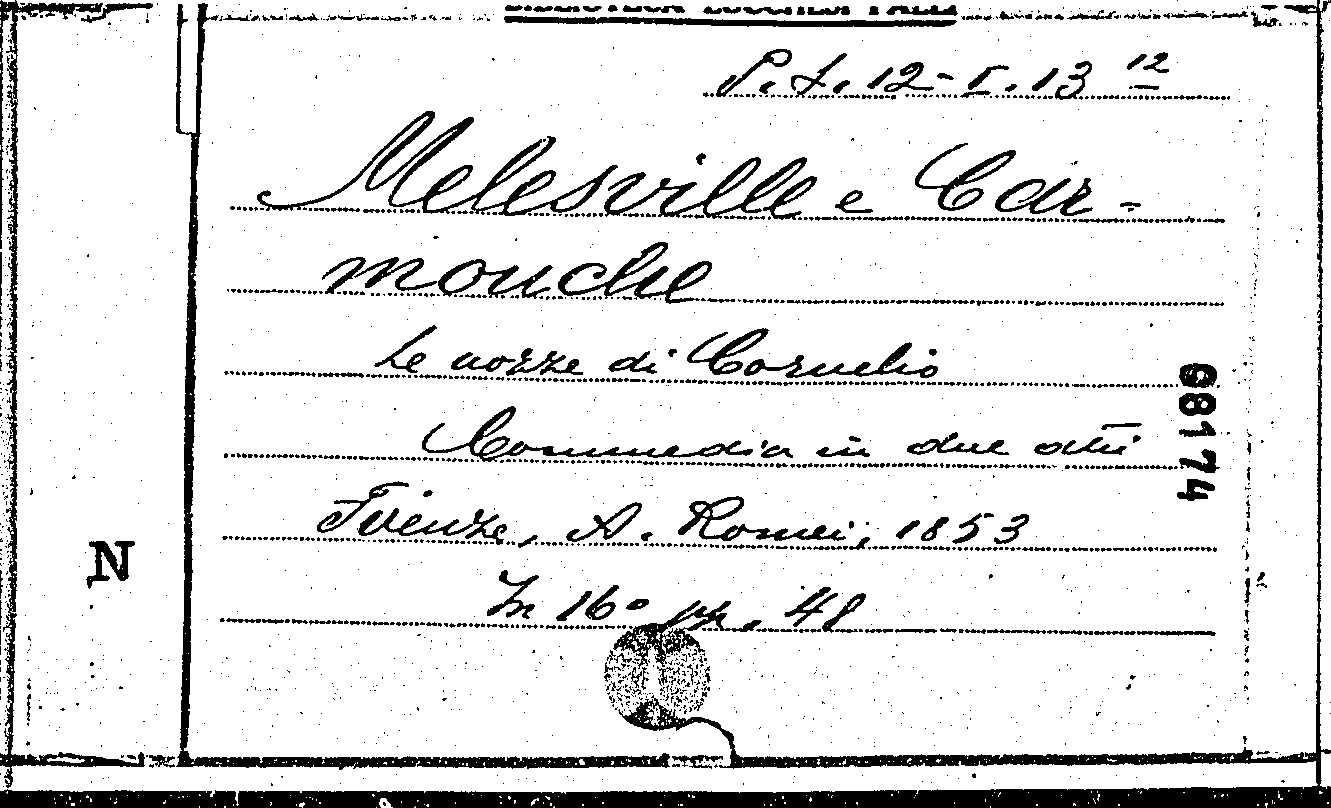 BIBLIOTECA LUCCHESI PALLI
P. t. 12 - I. 13 12
Melesville e Car-
mouche
Le nozze di Cornelio
Commedia in due atti
Firenze, A. Romei, 1853
In 16° pp. 48
68174
N